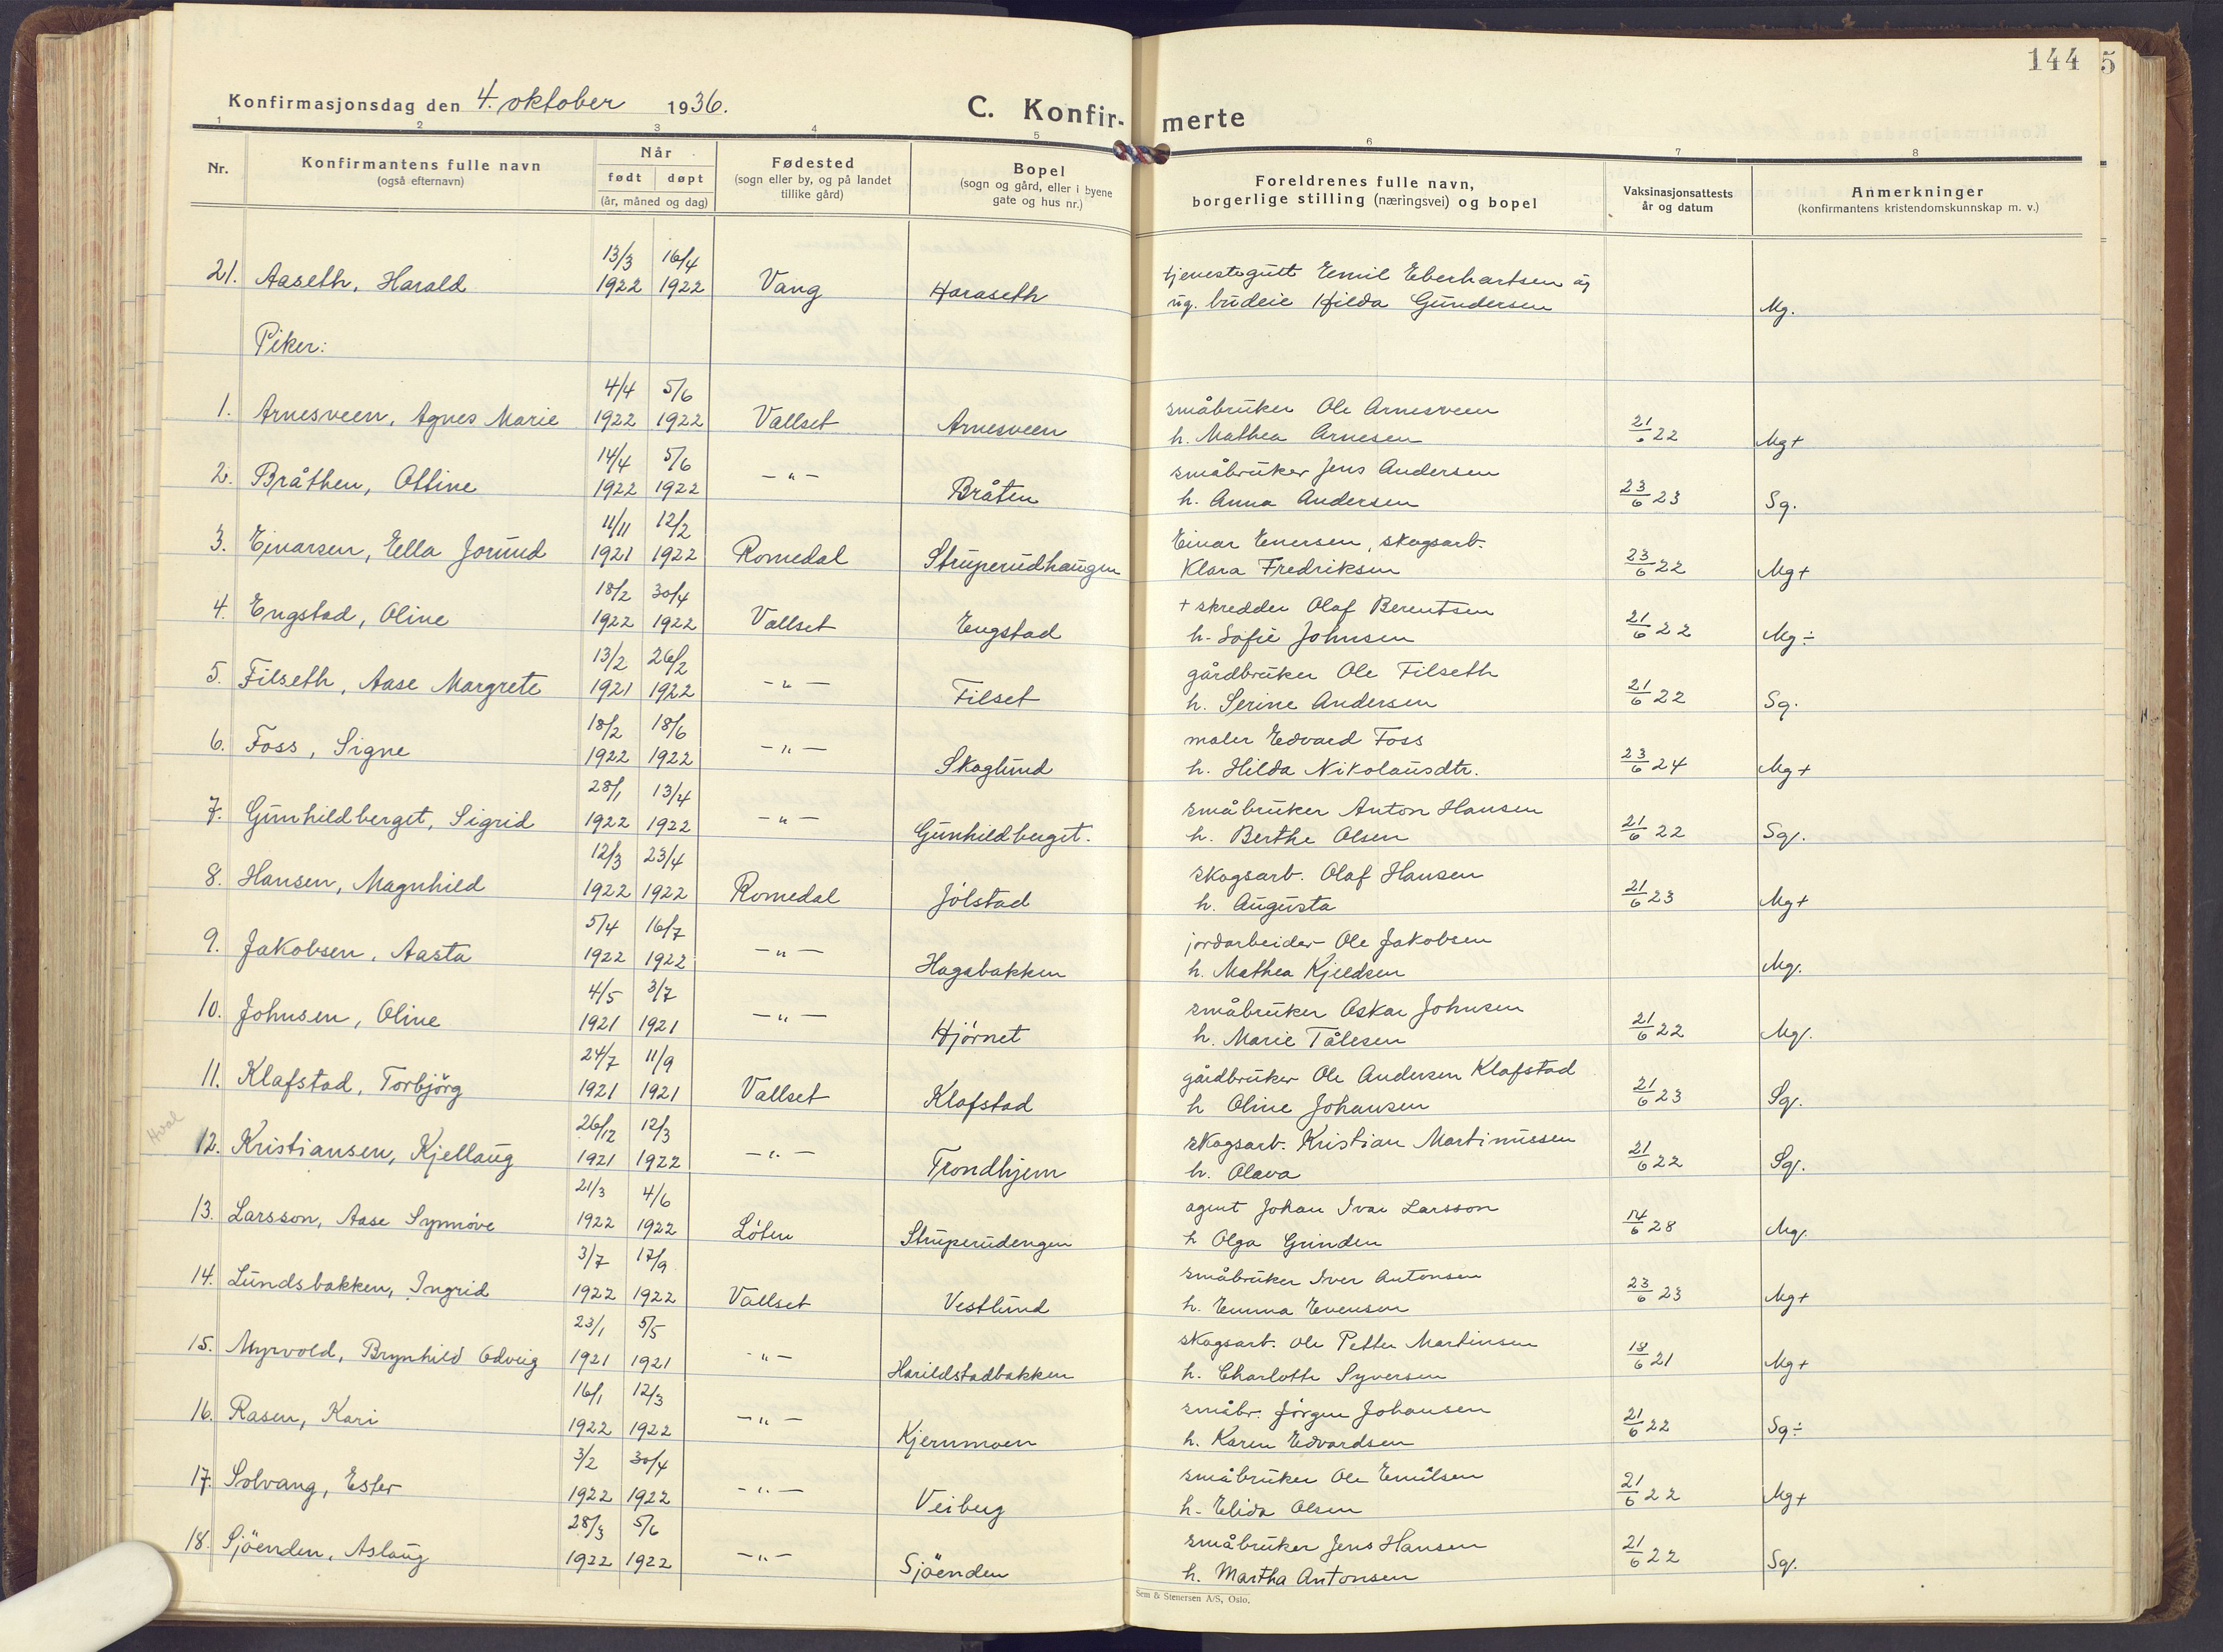 144 5
Konfirmasjonsdag den 4. oktober 1936.
C. Konfir- merte
1 2 3 4 5 6 7 8
Nr. Konfirmantens fulle navn (også efternavn) Når født døpt (år, måned og dag) Fødested (sogn eller by, og på landet tillike gård) Bopel (sogn og gård, eller i byene gate og hus nr.) Foreldrenes fulle navn, borgerlige stilling (næringsvei) og bopel Vaksinasjonsattests år og datum Anmerkninger (konfirmantens kristendomskunnskap m. v.)
13/3 16/4 tjenestegutt Emil Eberhartsen og
21. Aaseth, Harald 1922 1922 Vang Haraseth ug. budeie Hilda Gundersen Mg.
Piker:
4/4 5/6 småbruker Ole Arnesveen
1. Arnesveen, Agnes Marie 1922 1922 Vallset Arnesveen h. Mathea Arnesen 21/6 22 Mg+
14/4 5/6 småbruker Jens Andersen
2. Bråthen, Ottine 1922 1922 -"- Bråten h. Anna Andersen 23/6 23 Sg.
11/11 12/2 Einar Enersen, skogsarb.
3. Einarsen, Ella Jorund 1921 1922 Romedal Struperudhaugen Klara Fredriksen 23/6 22 Mg+
18/2 30/4 + skredder Olaf Berentsen
4. Engstad, Oline 1922 1922 Vallset Engstad h. Sofie Johnsen 21/6 22 Mg÷
13/2 26/2 gårdbruker Ole Filseth
5. Filseth, Aase Margrete 1921 1922 -"- Filset h. Serine Andersen 21/6 22 Sg.
18/2 18/6 maler Edvard Foss
6. Foss, Signe 1922 1922 -"- Skoglund h. Hilda Nikolausdtr. 23/6 24 Mg+
28/1 13/4 småbruker Anton Hansen
7. Gunhildberget, Sigrid 1922 1922 -"- Gunhildberget. h. Berthe Olsen 21/6 22 Sg.
12/3 23/4 skogsarb. Olaf Hansen
8. Hansen, Magnhild 1922 1922 Romedal Jølstad h. Augusta 21/6 23 Mg+
5/4 16/7 jordarbeider Ole Jakobsen
9. Jakobsen, Aasta 1922 1922 -"- Hagabakken h. Mathea Kjeldsen Mg.
4/5 3/7 småbruker Oskar Johnsen
10. Johnsen, Oline 1921 1921 -"- Hjørnet h. Marie Tålesen 21/6 22 Mg.
24/7 11/9 gårdbruker Ole Andersen Klafstad
11. Klafstad, Torbjørg 1921 1921 Vallset Klafstad h Oline Johansen 21/6 23 Sg.
Hval
26/12 12/3 skogsarb. Kristian Martinussen
12. Kristiansen, Kjellaug 1921 1922 -"- Trondhjem h. Olava 21/6 22 Sg.
21/3 4/6 agent Johan Ivar Larsson
13. Larsson, Aase Synnøve 1922 1922 Løten Struperudengen h Olga Grinden 14/6 28 Mg.
3/7 17/9 småbruker Iver Antonsen
14. Lundsbakken, Ingrid 1922 1922 Vallset Vestlund h. Emma Evensen 23/6 23 Mg+
23/1 5/5 skogsarb. Ole Petter Martinsen
15. Myrvold, Brynhild Odveig 1921 1921 -"- Harildstadbakken h. Charlotte Syversen 18/6 21 Mg+
16/1 12/3 småbr. Jørgen Johansen
16. Rasen, Kari 1922 1922 -"- Kjernmoen h. Karen Edvardsen 21/6 22 Sg÷
3/2 30/4 småbruker Ole Emilsen
17. Solvang, Ester 1922 1922 -"- Veiberg h. Elida Olsen 21/6 22 Mg+
28/3 5/6 småbruker Jens Hansen
18. Sjöenden, Aslaug 1922 1922 -"- Sjöenden h. Martha Antonsen 21/6 22 Sg.
Sem & Stenersen A/S, Oslo.